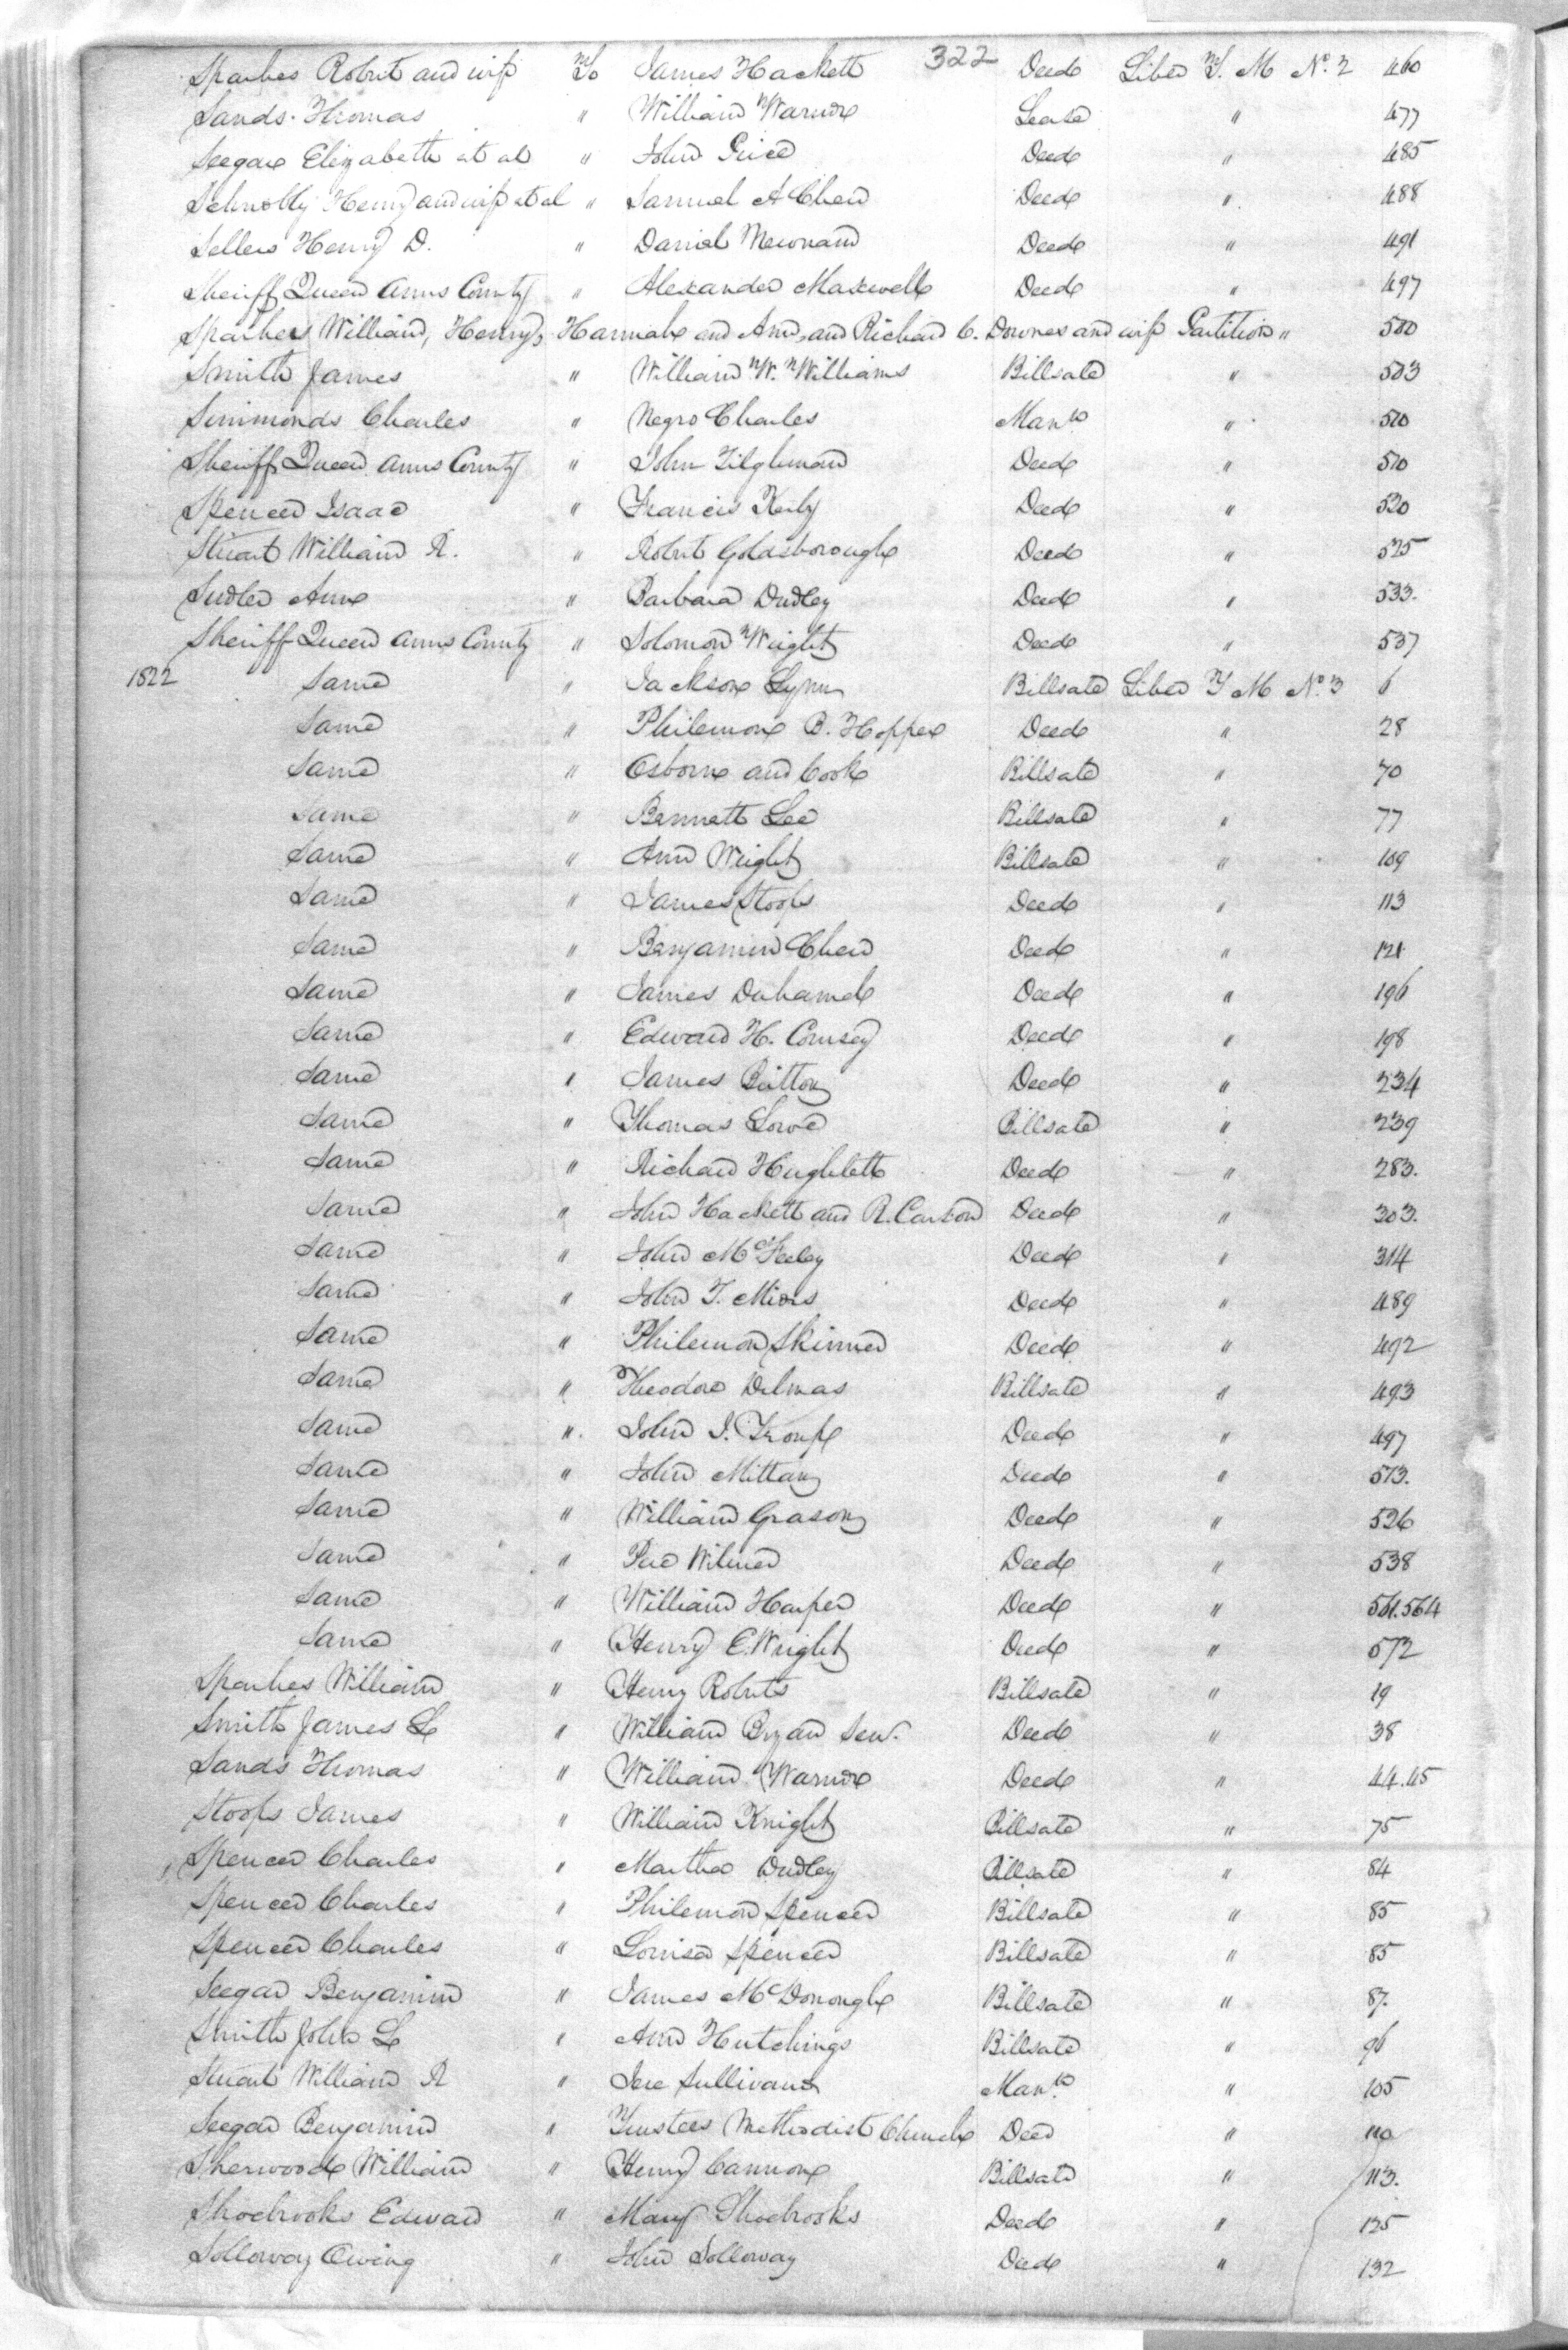 322
Sparkes Robert and wife To James Hackett Deed Liber T. M No. 2 460
Sands Thomas " William Warner Lease " 477
Seegar Elizabeth et al " John Price Deed " 485
Schnebly Henry and wife et al " Samuel A Chew Deed " 488
Sellers Henry D. " Daniel Newnam Deed " 491
Sheriff Queen Anns County " Alexander Maxwell Deed " 497
Sparkes William, Henry, Hannah and Ann, and Richard C. Downes and wife Partition " 500
Smith James " William W. Williams Billsale " 503
Simmonds Charles " Negro Charles Man.n " 510
Sheriff Queen Anns County " John Tilghman Deed " 510
Spencer Isaac " Francis Kerby Deed " 520
Stuart William R. " Robert Goldsborough Deed " 525
Sudler Anne " Barbara Dudley Deed " 533.
Sheriff Queen Anns County " Solomon Wright Deed " 537
1822 Same " Jackson Lynn Billsale Liber T M No. 3 6
Same " Philemon B. Hopper Deed " 28
Same " Osborn and Cook Billsale " 70
Same " Bennett Lee Billsale " 77
Same " Ann Wright Billsale " 109
Same " James Stoops Deed " 113
Same " Benjamin Chew Deed " 121
Same " James Duhamel Deed " 196
Same " Edward H. Comsey Deed " 198
Same " James Britton Deed " 234
Same " Thomas Lowe Billsale " 239
Same " Richard Hughlett Deed " 283.
Same " John Hackett and R. Carson Deed " 303.
Same " John McFeeley Deed " 314
Same " John T. Miers Deed " 489
Same " Philemon Skinner Deed " 492
Same " Theodore Delmas Billsale " 493
Same " John I. Troup Deed " 497
Same " John Mittan Deed " 513.
Same " William Grason Deed " 526
Same " Pere Wilmer Deed " 538
Same " William Harper Deed " 561.564
Same " Henry E. Wright Deed " 572
Sparkes William " Henry Roberts Billsale " 19
Smith James L " William Bryan Sen. Deed " 38
Sands Thomas " William Warner Deed " 44.45
Stoops James " William Knight Billsale " 75
Spencer Charles " Martha Dudley Billsale " 84
Spencer Charles " Philemon Spencer Billsale " 85
Spencer Charles " Louisa Spencer Billsale " 85
Seegar Benjamin " James McDonough Billsale " 87.
Smith John L " Ann Hutchings Billsale " 96
Stuart William R " Jere Sullivan Man.n " 105
Seegar Benjamin " Trustees Methodist Church Deed " 110
Sherwood William " Henry Cannon Billsale " 113.
Shoebrooks Edward " Mary Shoebrooks Deed " 125
Solloway Ewing " John Solloway Deed " 132